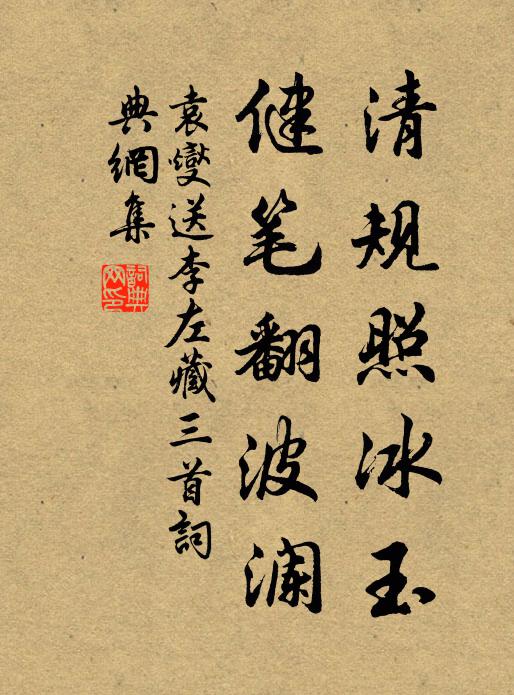 清规照冰玉
健笔翻波澜
袁燮送李左藏三首詞
典網集
詞典
网印